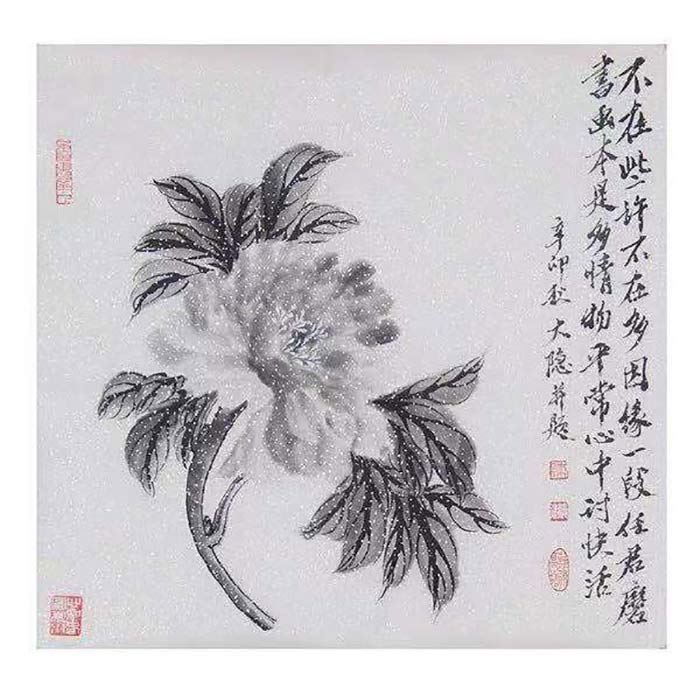 不在些许不在多因缘一段任君磨
书画本是多情物平常心中讨快活
辛卯秋 大隐并题